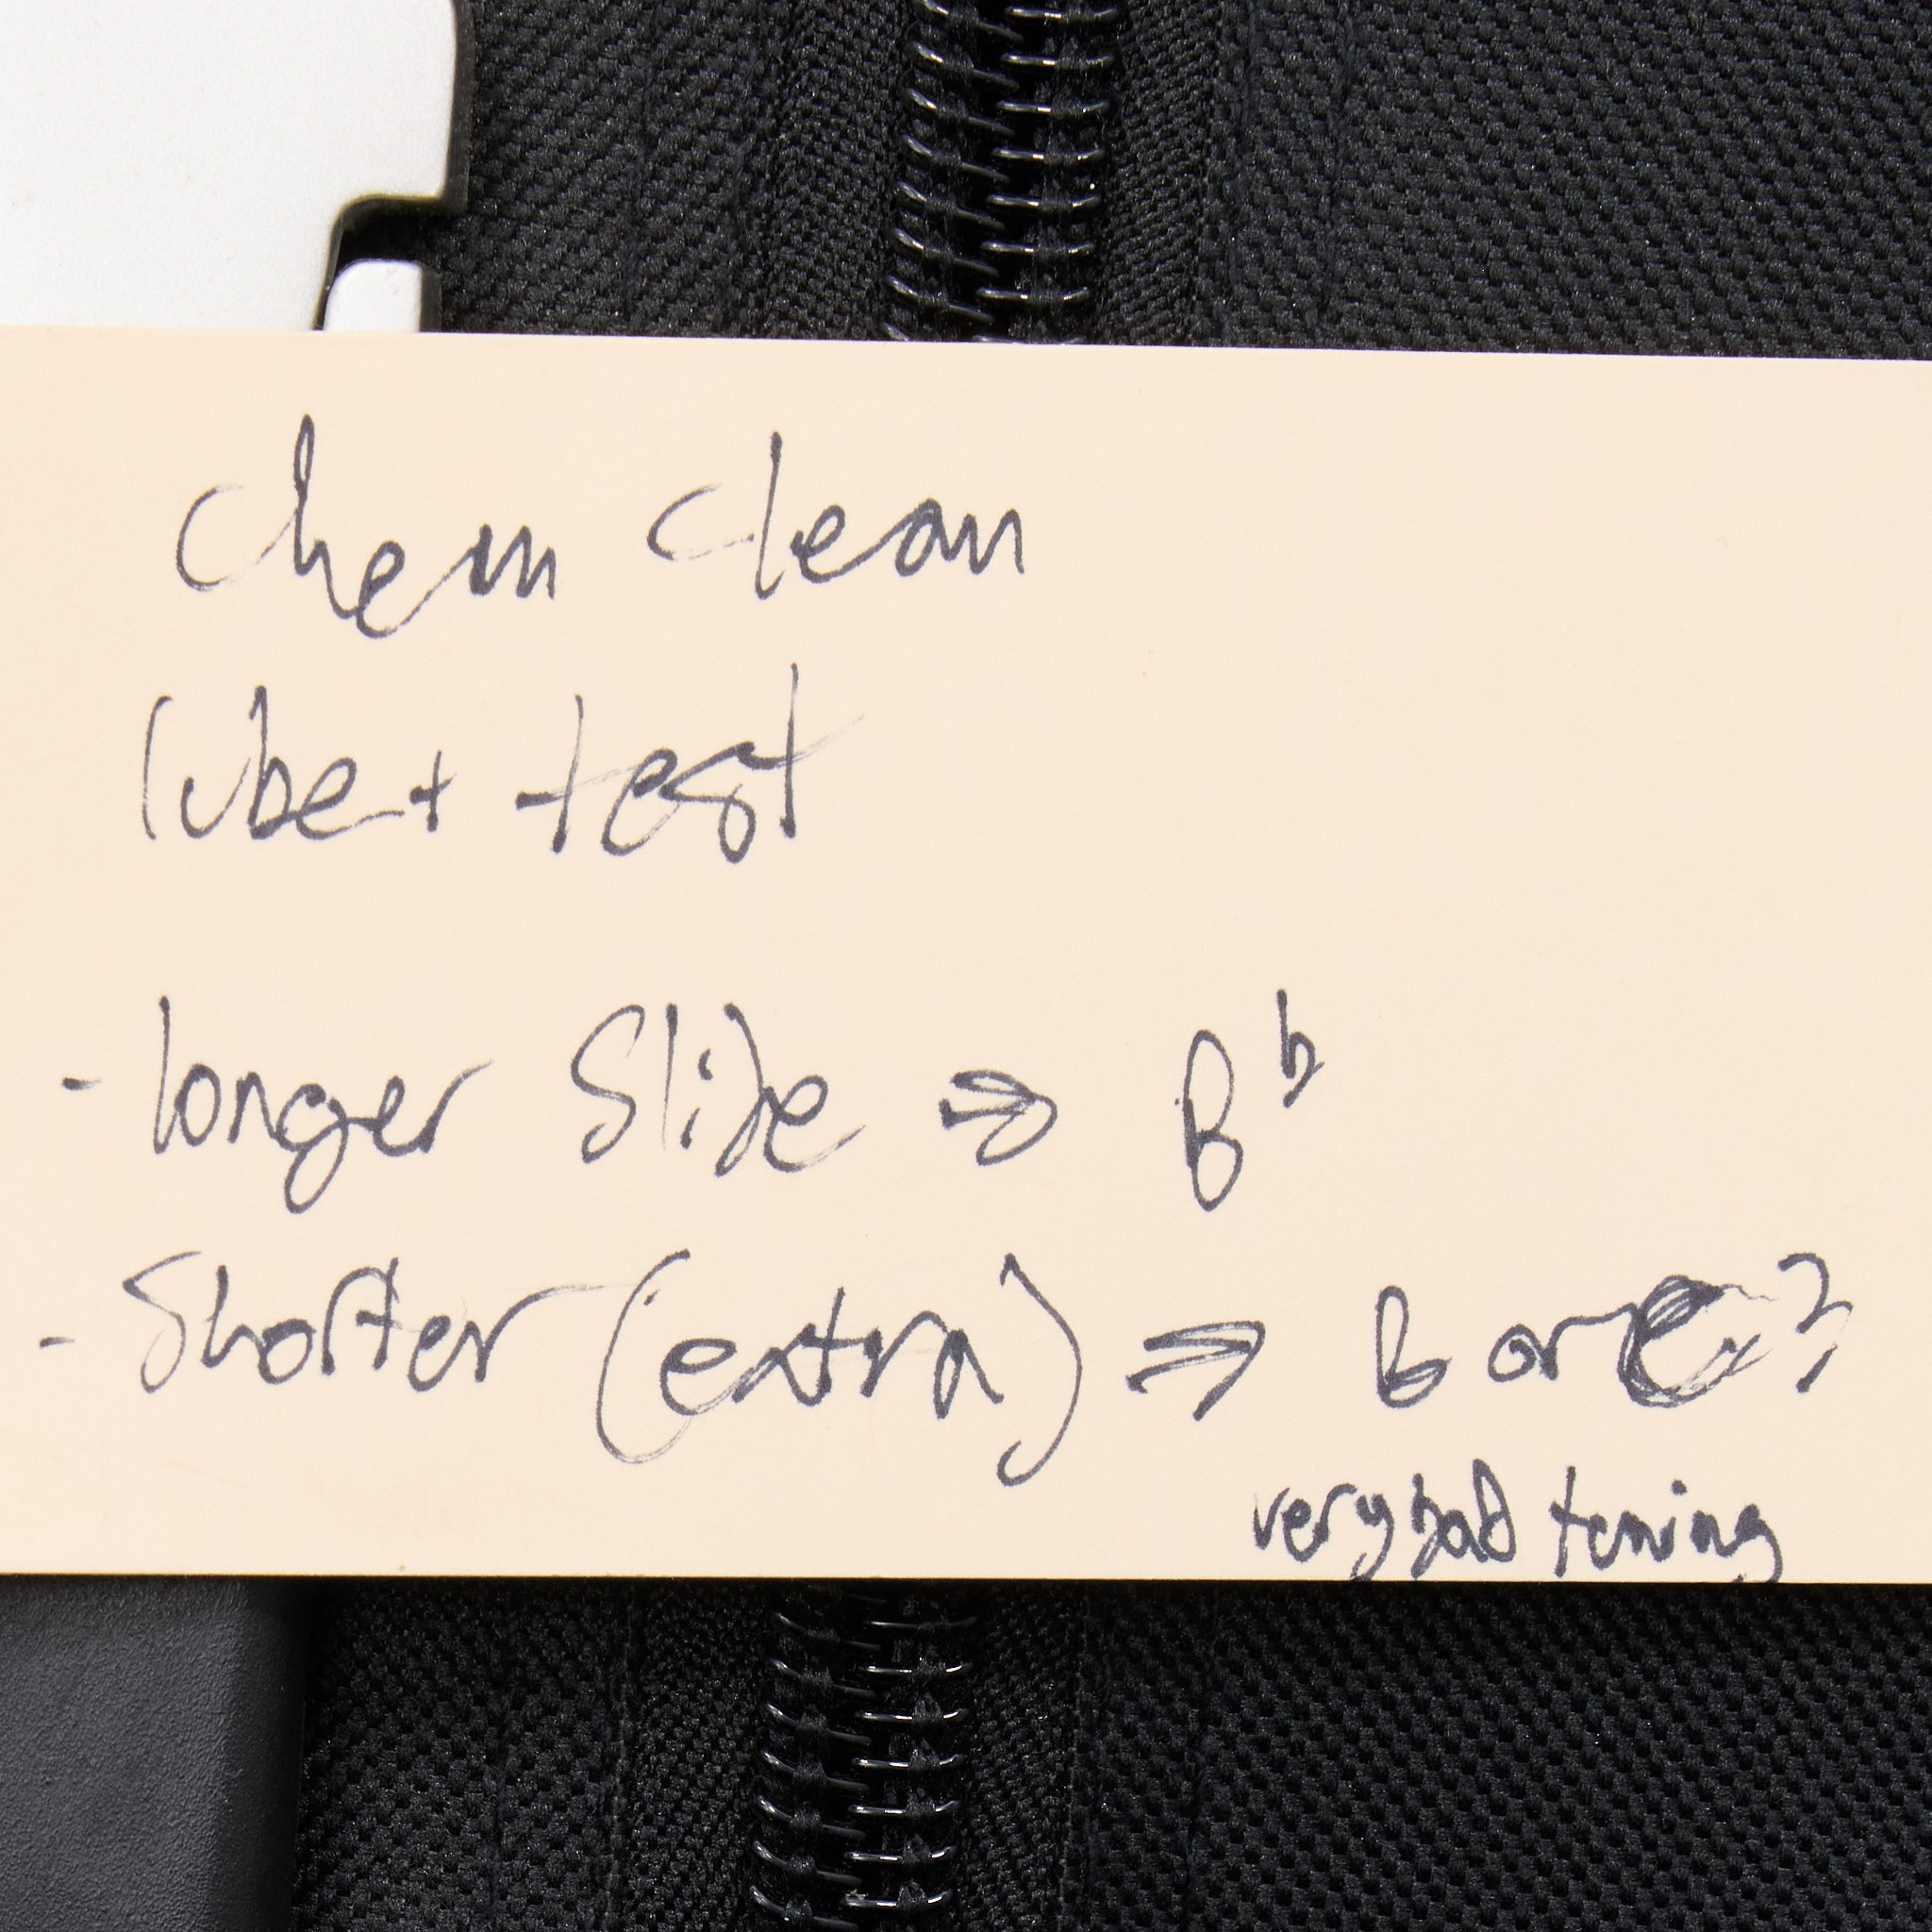 Chem clean
lube + test
- longer Slide ⇒ B♭
- Shorter (extra) ⇒ B or C?
very bad tuning